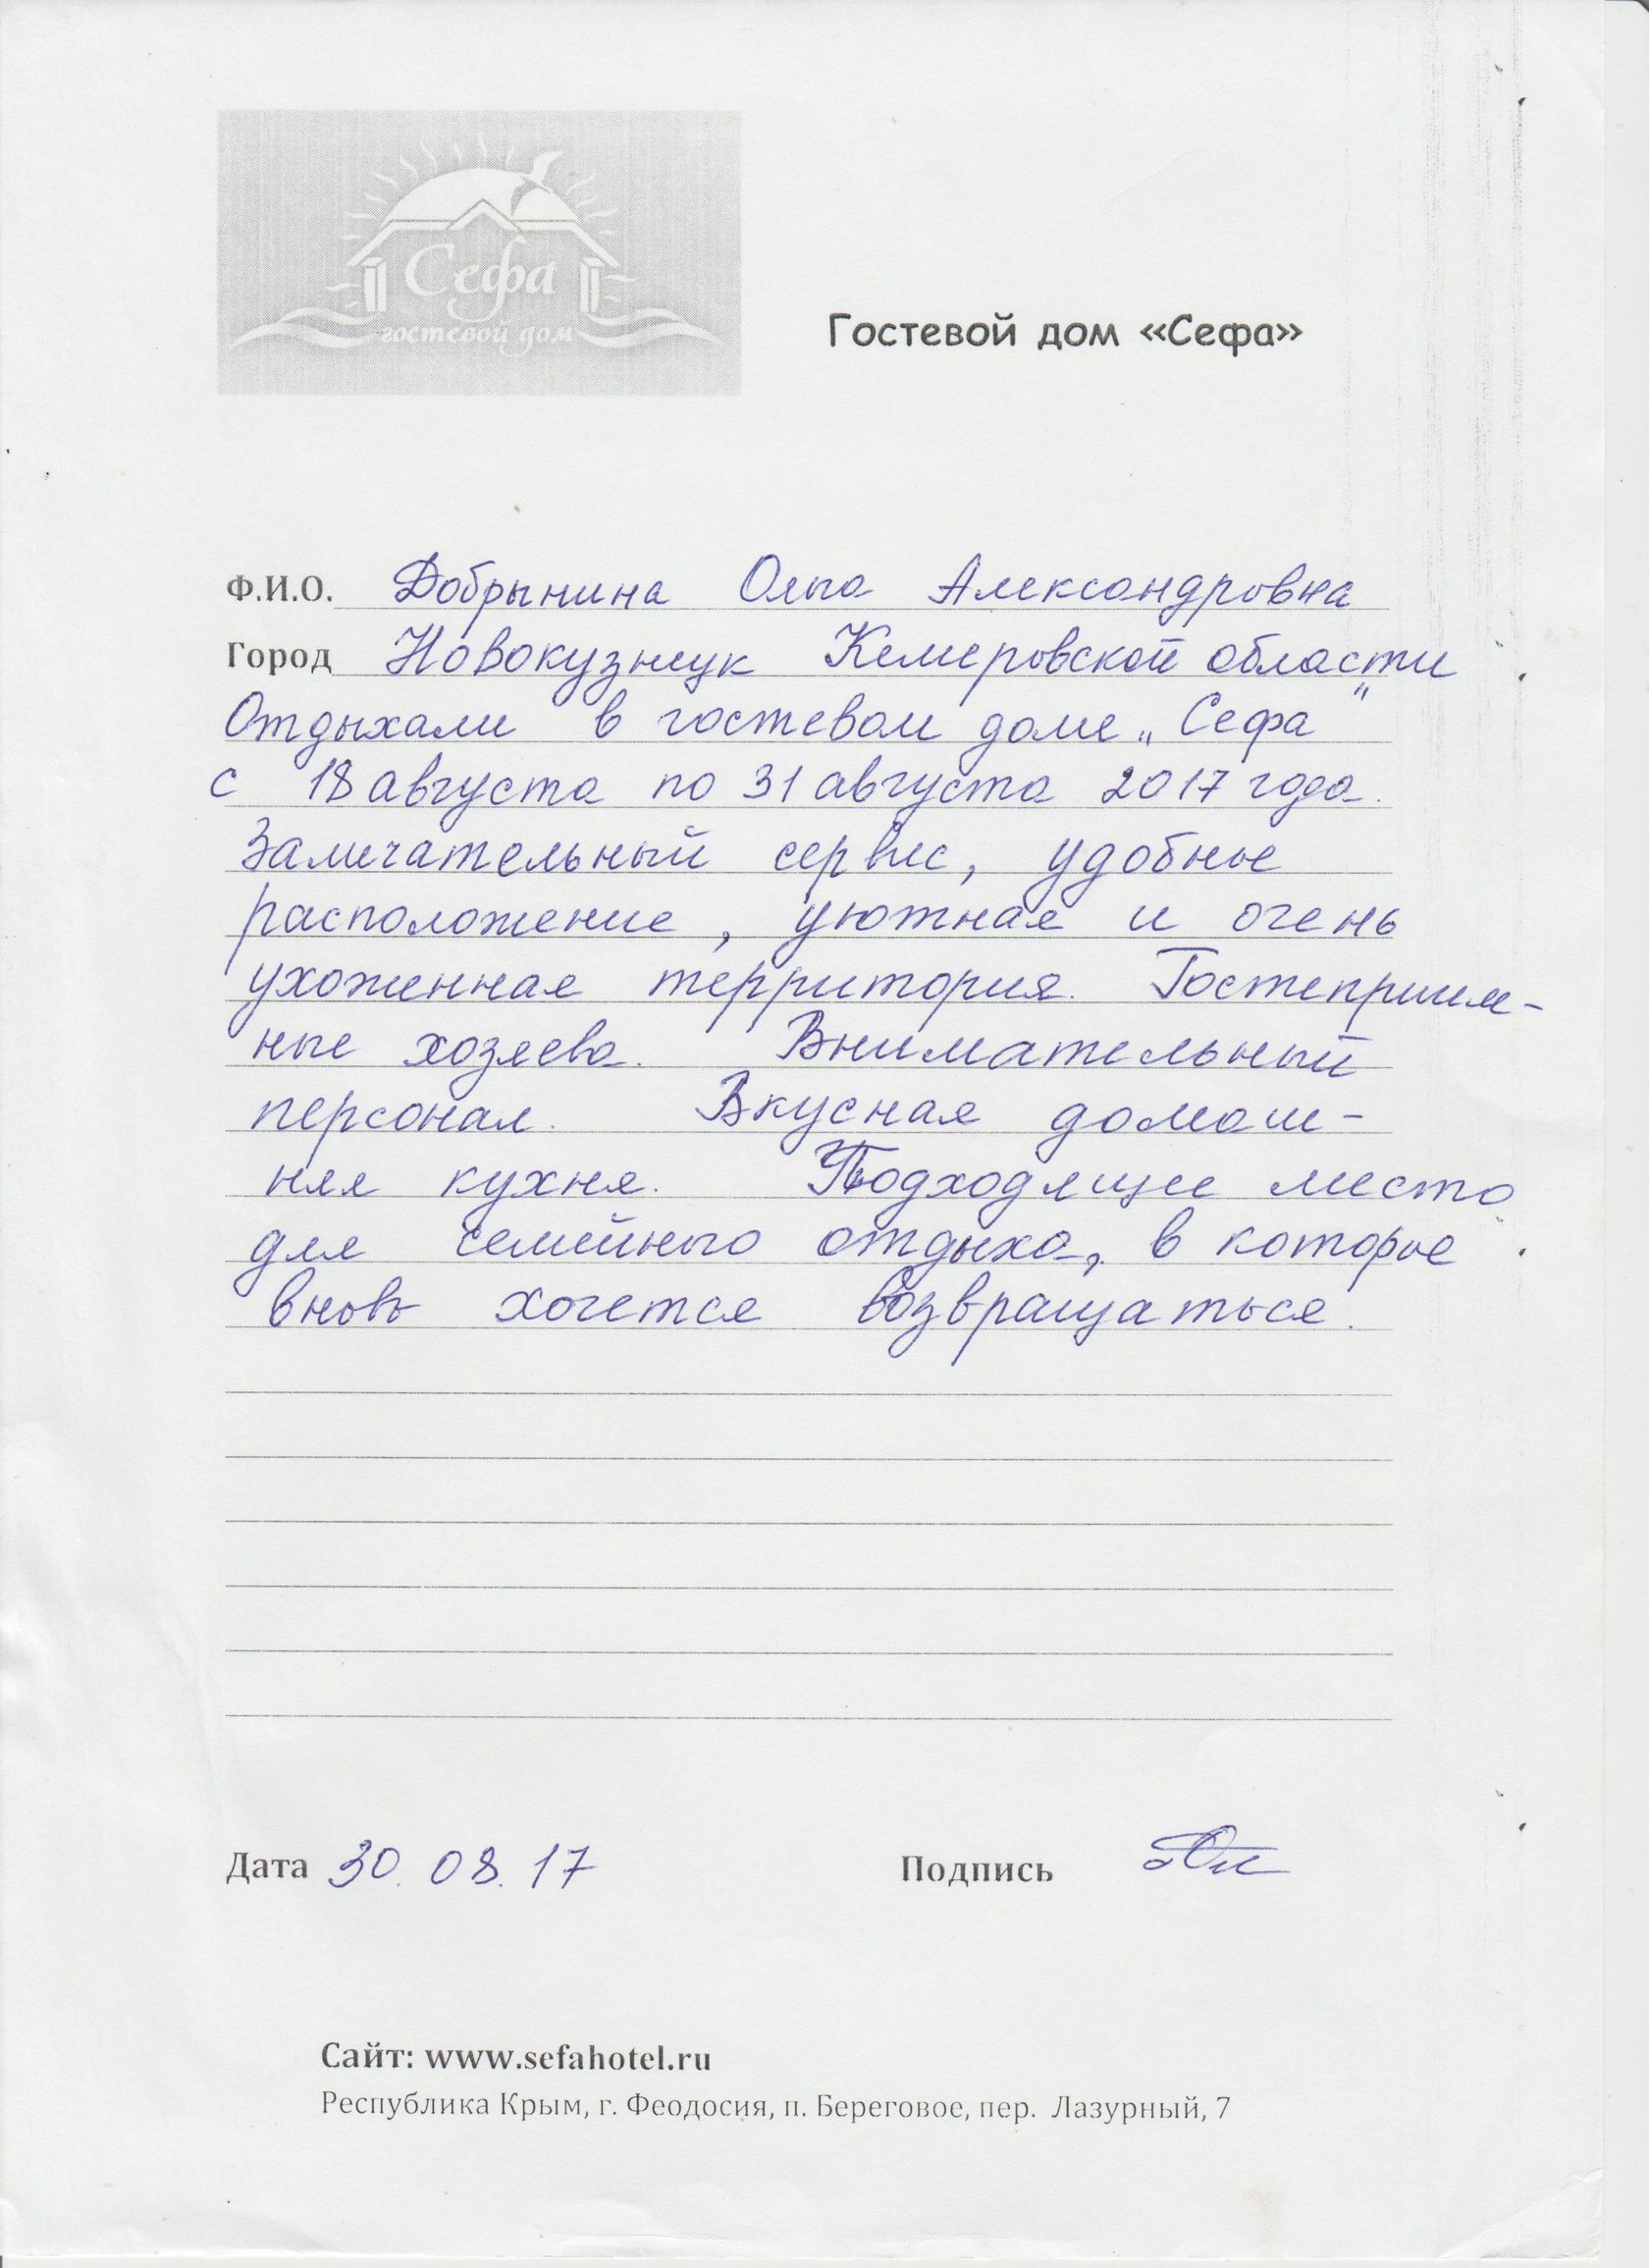 Сефа
гостевой дом
Гостевой дом «Сефа»
Ф.И.О. Добрынина Ольга Александровна
Город Новокузнецк Кемеровской области
Отдыхали в гостевом доме „Сефа"
с 18 августа по 31 августа 2017 года.
Замечательный сервис, удобное
расположение, уютная и очень
ухоженная территория. Гостеприим-
ные хозяева. Внимательный
персонал. Вкусная домаш-
няя кухня. Подходящее место
для семейного отдыха, в которое
вновь хочется возвращаться.
Дата 30.08.17 Подпись
Сайт: www.sefahotel.ru
Республика Крым, г. Феодосия, п. Береговое, пер. Лазурный, 7